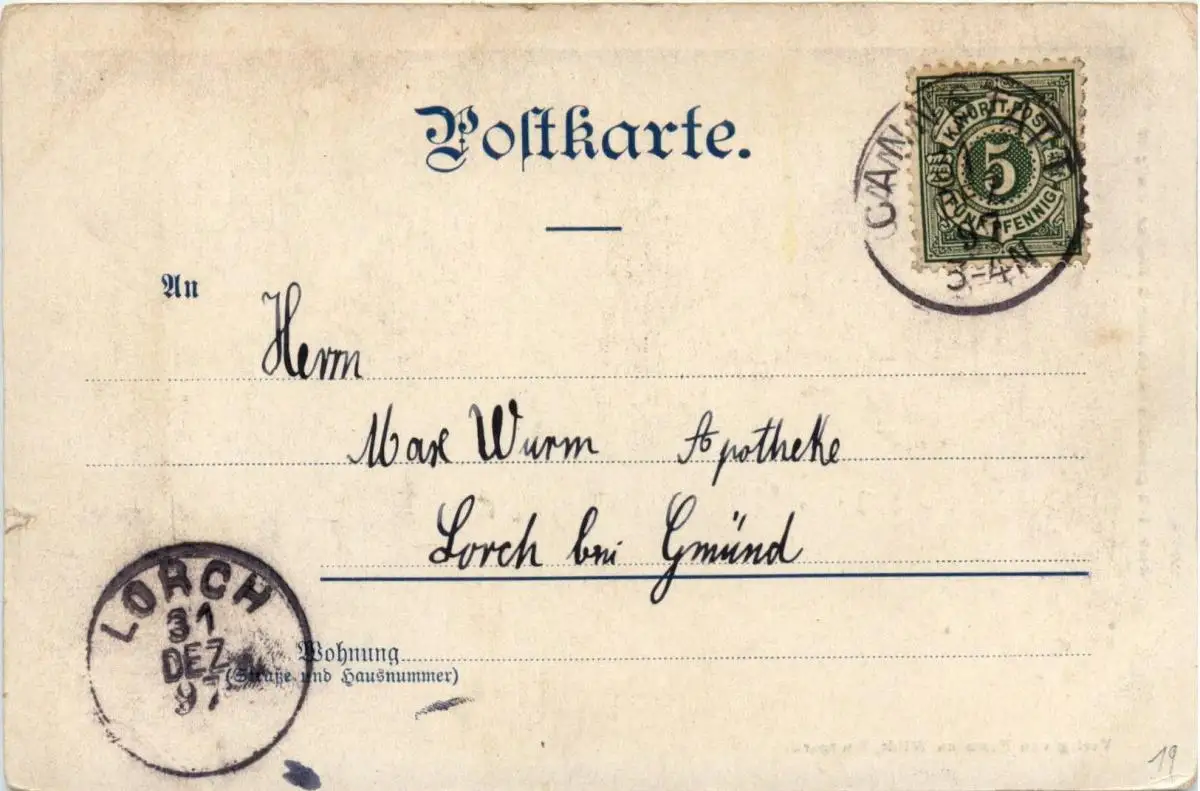 Postkarte.
K. WÜRTT. POST
5
FÜNF PFENNIG
CANNSTATT
97
3-4N
An
Herrn
Max Wurm Apotheke
Lorch bei Gmünd
LORCH
31
DEZ
97
Wohnung
(Straße und Hausnummer)
19